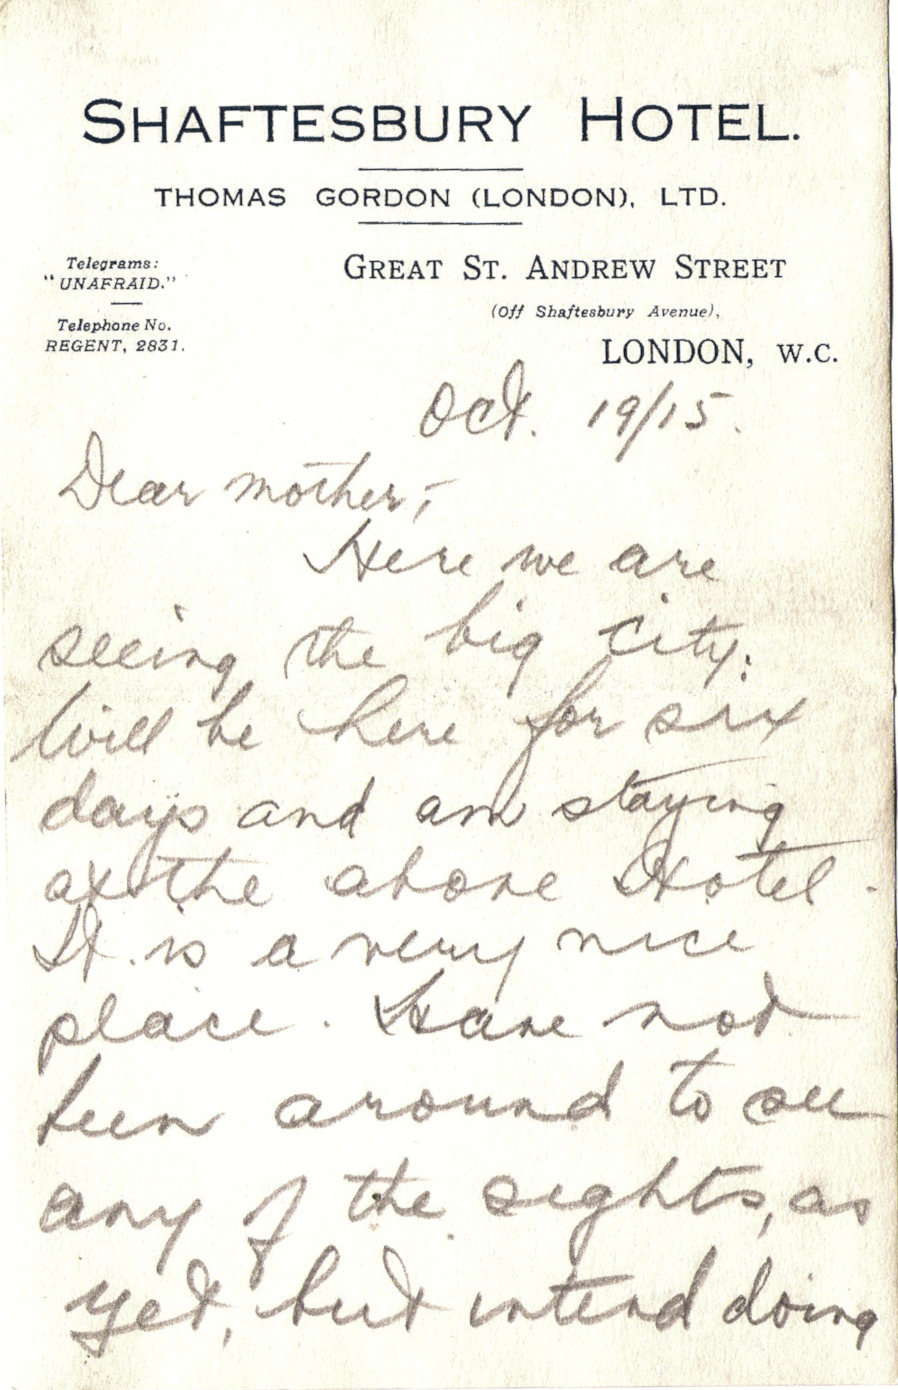 SHAFTESBURY HOTEL.
THOMAS GORDON (LONDON), LTD.
Telegrams:
"UNAFRAID."
Telephone No.
REGENT, 2831.
GREAT ST. ANDREW STREET
(Off Shaftesbury Avenue),
LONDON, W.C.
Oct. 19/15.
Dear mother;
Here we are
seeing the big city.
Will be here for six
days and am staying
at the above Hotel.
It is a very nice
place. Have not
been around to see
any of the sights, as
yet, but intend doing